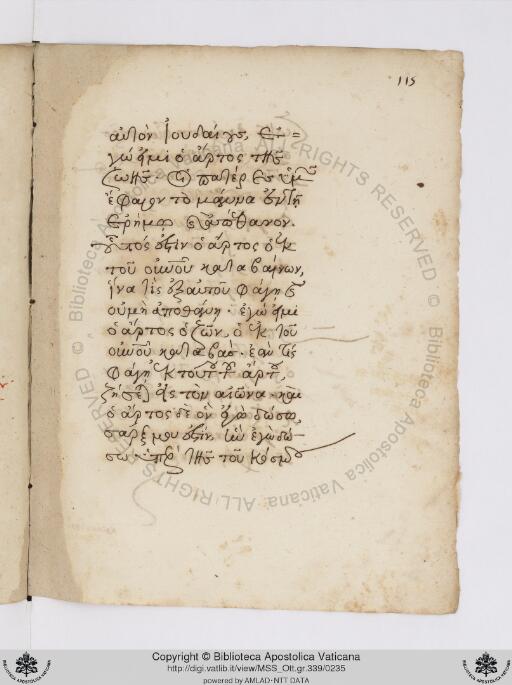 115
αὐτὸν Ἰουδαίους, Ἐ=
γώ εἰμι ὁ ἄρτος τῆς
ζωῆς. Οἱ πατέρες ὑμῶν
ἔφαγον τὸ μάννα ἐν τῇ
ἐρήμῳ καὶ ἀπέθανον.
οὗτός ἐστιν ὁ ἄρτος ὁ ἐκ
τοῦ οὐνοῦ καταβαίνων,
ἵνα τις ἐξ αὐτοῦ φάγῃ καὶ
οὐ μὴ ἀποθάνῃ. ἐγώ εἰμι
ὁ ἄρτος ὁ ζῶν, ὁ ἐκ τοῦ
οὐνοῦ καταβάς. ἐάν τις
φάγῃ ἐκ τούτου τοῦ ἄρτου
ζήσεται εἰς τὸν αἰῶνα. καὶ
ὁ ἄρτος δὲ ὃν ἐγὼ δώσω,
σάρξ μου ἐστίν, ἣν ἐγὼ δώ
σω ὑπὲρ τῆς τοῦ κόσμου
Copyright © Biblioteca Apostolica Vaticana
http://digi.vatlib.it/view/MSS_Ott.gr.339/0235
powered by AMLAD-NTT DATA
© Biblioteca Apostolica Vaticana. ALL RIGHTS RESERVED